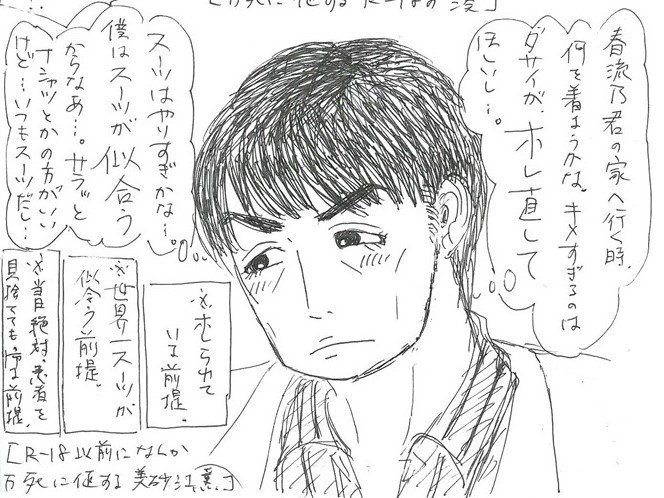 春流乃君の家へ行く時、
何を着ようかな。キメすぎるのは
ダサイが、ホレ直して
ほしいし…。
スーツはやりすぎかな…。
僕はスーツが似合う
からなあ…。サラッと
Tシャツとかの方がいい
けど…いつもスーツだし…
※ホレられて
いる前提。
※世界一スーツが
似合う前提。
見捨てても
前提。
[R-18以前になんか
万死に値する美砂江